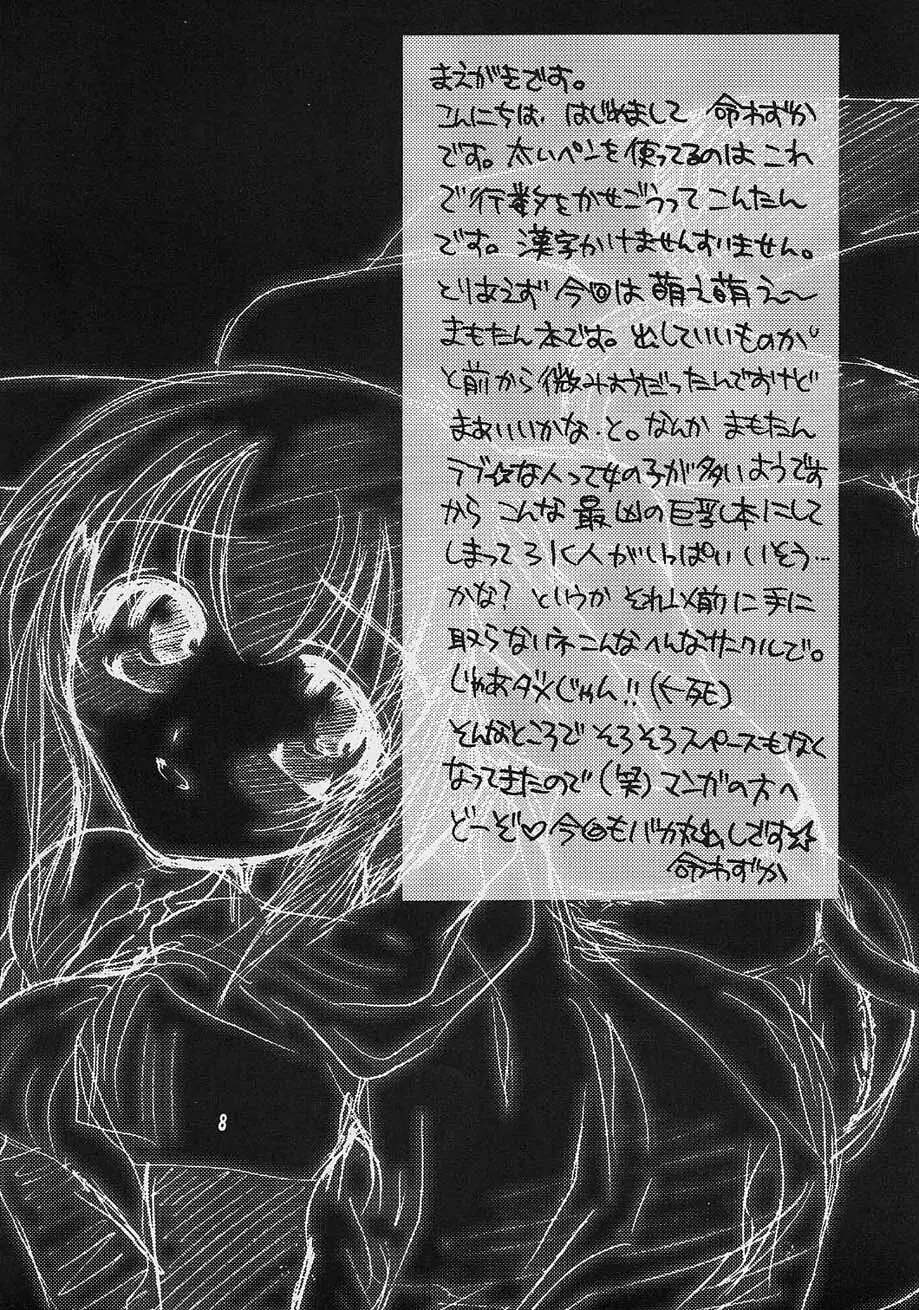 まえがきです。
こんにちは、はじめまして 命わずか
です。太いペンを使ってるのはこれ
で行数をかせごうってこんたん
です。漢字かけませんすいません。
とりあえず今回は萌え萌え〜
まもたん本です。出していいものか
と前から微みょうだったんですけど
まぁいいかな、と。なんか まもたん
ラブ☆な人って女の子が多いようです
から こんな 最凶の巨乳本にして
しまって ろく人がいっぱいいそう…
かな？ というか それ以前に手に
取らないネこんなへんなサークルで。
じゃあダメじゃん!!(←死)
そんなところで そろそろスペースもなく
なってきたので(笑)マンガの方へ
どーぞ♡今回もバカ丸出しです☆
命わずか
8